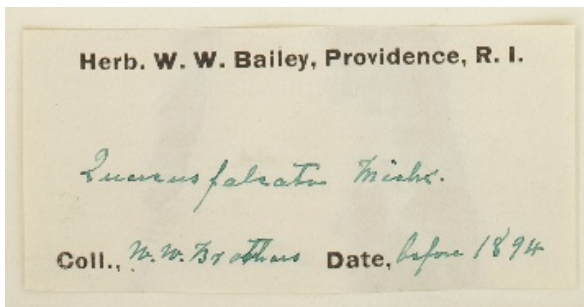 Herb. W. W. Bailey, Providence, R. I.
Quercus falcata Michx.
Coll., W. W. Brothers Date, before 1894